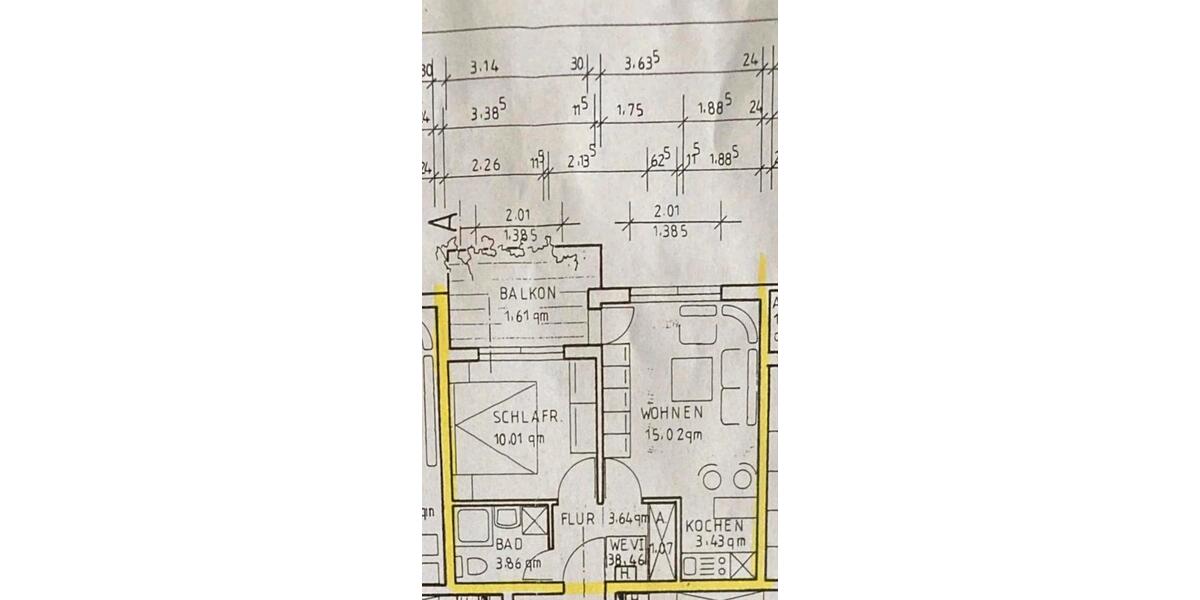 30 3.14 30 3.63⁵ 24
3.38⁵ 11⁵ 1.75 1.88⁵ 24
24 2.26 11⁹ 2.13⁵ 62⁵ 11⁵ 1.88⁵
A
2.01 2.01
1.385 1.385
BALKON
1.61 qm
SCHLAFR.
10.01 qm
WOHNEN
15.02 qm
FLUR 3.64 qm A.
1.07
KOCHEN
3.43 qm
BAD
3.86 qm
WEVI
38.46
H
qm